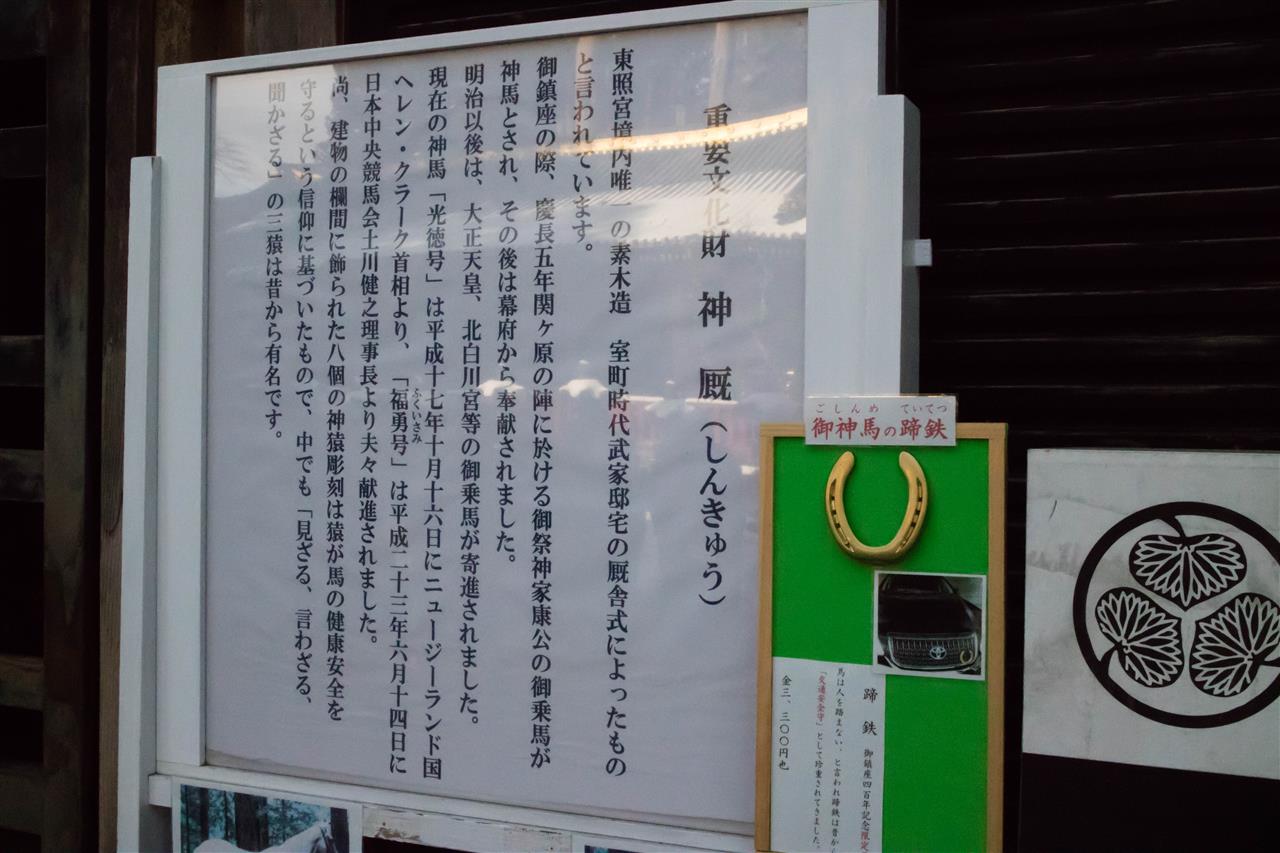 重要文化財　神　厩（しんきゅう）
東照宮境内唯一の素木造　室町時代武家邸宅の厩舎式によったもの
と言われています。
御鎮座の際、慶長五年関ヶ原の陣に於ける御祭神家康公の御乗馬が
神馬とされ、その後は幕府から奉献されました。
明治以後は、大正天皇、北白川宮等の御乗馬が寄進されました。
現在の神馬「光徳号」は平成十七年十月十六日にニュージーランド国
ヘレン・クラーク首相より、「福勇号」は平成二十三年六月十四日に
ふくいさみ
日本中央競馬会土川健之理事長より夫々献進されました。
尚、建物の欄間に飾られた八個の神猿彫刻は猿が馬の健康安全を
守るという信仰に基づいたもので、中でも「見ざる、言わざる、
聞かざる」の三猿は昔から有名です。
ごしんめ　ていてつ
御神馬の蹄鉄
蹄　鉄　御鎮座四百年記念限定
馬は人を踏まない、と言われ蹄鉄は昔から
「交通安全守」として珍重されてきました。
金三、三〇〇円也